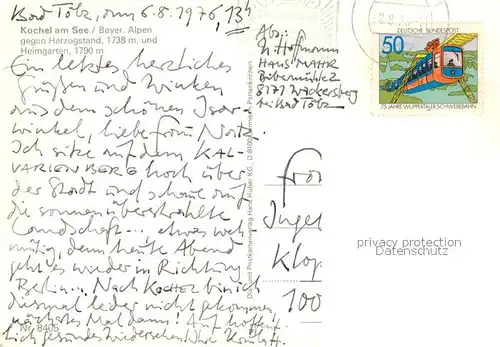 Bad Tölz, am 6.8.1976, 13h
Kochel am See / Bayer. Alpen
gegen Herzogstand, 1738 m, und
Heimgarten, 1790 m
Ein letztes herzliches
Grüßen und Winken
aus dem schönen Isar-
winkel, liebe Frau
Ich sitze auf dem KAL-
VARIENBERG hoch über
der Stadt und schaue auf
die sonnenüberstrahlte
Landschaft... etwas weh-
mütig, denn heute Abend
geht es wieder in Richtung
Berlin... Nach KOCHEL bin ich
diesmal leider nicht gekommen,
nächstes Mal dann! Auf hoffent-
lich gesundes Wiedersehen! Ihre
Nr. 8405
Druck und Postkartenverlag Hans Huber KG, D-8100 Garmisch-Partenkirchen
Abs:
Hoffmann
HAUS MAHR
Bibermühle 2
8171 Wackersberg
bei Bad Tölz
DEUTSCHE BUNDESPOST
50
75 JAHRE WUPPERTALER SCHWEBEBAHN
Frau
Inge
Klop
100
privacy protection
Datenschutz